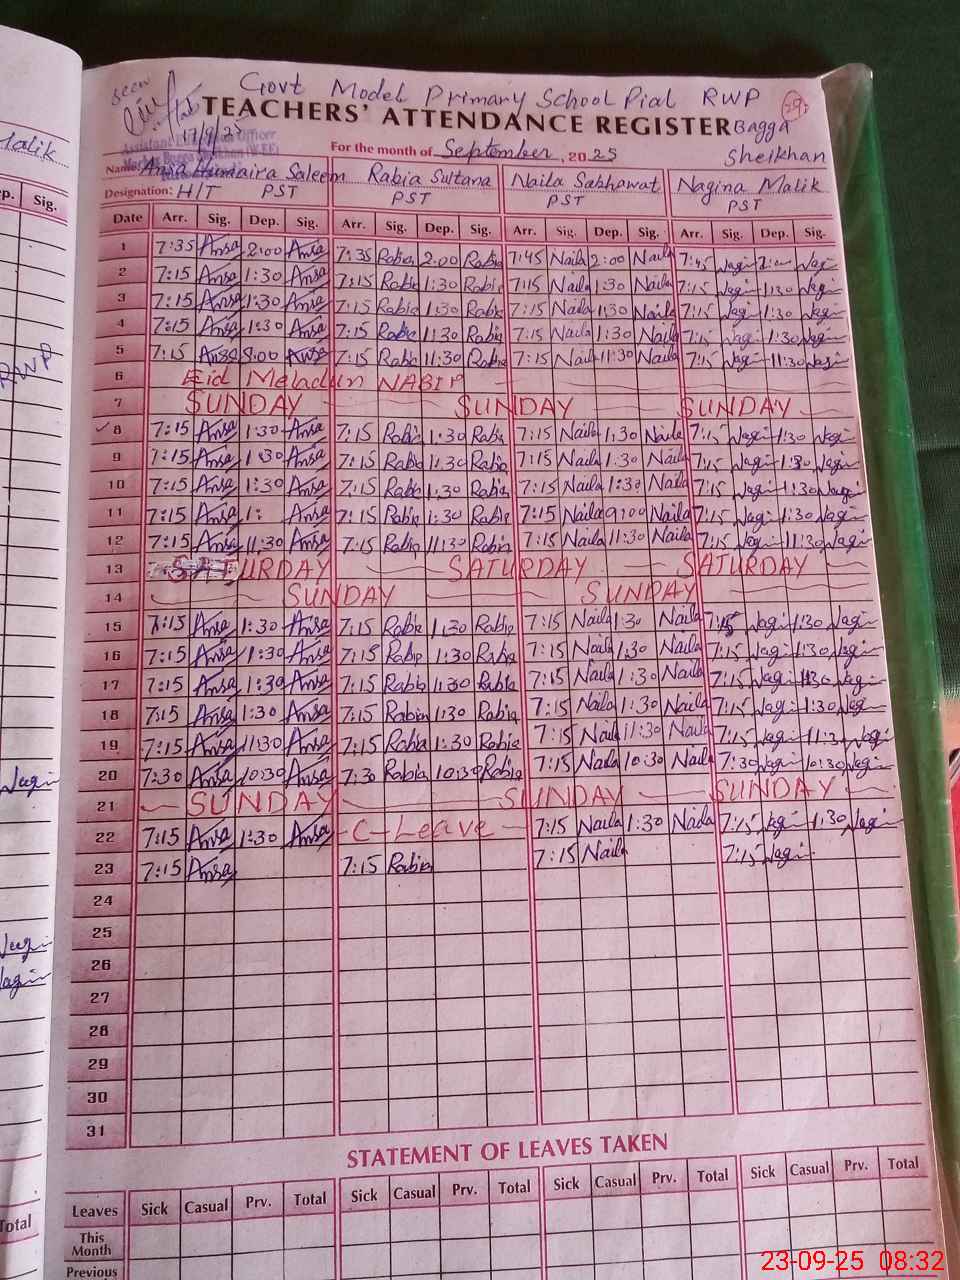 seen
Govt Model Primary School Pial RWP
29
TEACHERS' ATTENDANCE REGISTER Bagga
17/9/25
For the month of September, 2025 Sheikhan
Name: Ansa Humaira Saleem Rabia Sultana Naila Sabhawat Nagina Malik
Designation: H/T PST PST PST PST
Date Arr. Sig. Dep. Sig. Arr. Sig. Dep. Sig. Arr. Sig. Dep. Sig. Arr. Sig. Dep. Sig.
1 7:35 Ansa 2:00 Ansa 7:35 Rabia 2:00 Rabia 7:45 Naila 2:00 Naila 7:45 Nagi
2 7:15 Ansa 1:30 Ansa 7:15 Rabia 1:30 Rabia 7:15 Naila 1:30 Naila 7:15 Nagi 1:30 Nagi
3 7:15 Ansa 1:30 Ansa 7:15 Rabia 1:30 Rabia 7:15 Naila 1:30 Naila 7:15 Nagi 1:30 Nagi
4 7:15 Ansa 1:30 Ansa 7:15 Rabia 1:30 Rabia 7:15 Naila 1:30 Naila 7:15 Nagi 1:30 Nagi
5 7:15 Ansa Ansa 7:15 Rabia 11:30 Rabia 7:15 Naila 11:30 Naila 7:15 Nagi 11:30 Nagi
6 Eid Meladun NABIP
7 SUNDAY SUNDAY SUNDAY
8 7:15 Ansa 1:30 Ansa 7:15 Rabia 1:30 Rabia 7:15 Naila 1:30 Naila 7:15 Nagi 1:30 Nagi
9 7:15 Ansa 1:30 Ansa 7:15 Rabia 1:30 Rabia 7:15 Naila 1:30 Naila 7:15 Nagi 1:30 Nagi
10 7:15 Ansa 1:30 Ansa 7:15 Rabia 1:30 Rabia 7:15 Naila 1:30 Naila 7:15 Nagi 1:30 Nagi
11 7:15 Ansa 1: Ansa 7:15 Rabia 1:30 Rabia 7:15 Naila 9:00 Naila 7:15 Nagi 1:30 Nagi
12 7:15 Ansa 11:30 Ansa 7:15 Rabia 11:30 Rabia 7:15 Naila 11:30 Naila 7:15 Nagi 11:30 Nagi
13 SATURDAY SATURDAY SATURDAY
14 SUNDAY SUNDAY
15 7:15 Ansa 1:30 Ansa 7:15 Rabia 1:30 Rabia 7:15 Naila 1:30 Naila 7:15 Nagi 1:30 Nagi
16 7:15 Ansa 1:30 Ansa 7:15 Rabia 1:30 Rabia 7:15 Naila 1:30 Naila 7:15 Nagi 1:30 Nagi
17 7:15 Ansa 1:30 Ansa 7:15 Rabia 1:30 Rabia 7:15 Naila 1:30 Naila 7:15 Nagi 1:30 Nagi
18 7:15 Ansa 1:30 Ansa 7:15 Rabia 1:30 Rabia 7:15 Naila 1:30 Naila 7:15 Nagi 1:30 Nagi
19 7:15 Ansa 11:30 Ansa 7:15 Rabia 1:30 Rabia 7:15 Naila 11:30 Naila 7:15 Nagi 11:30 Nagi
20 7:30 Ansa 10:30 Ansa 7:30 Rabia 10:30 Rabia 7:15 Naila 10:30 Naila 7:30 Nagi 10:30 Nagi
21 SUNDAY SUNDAY SUNDAY
22 7:15 Ansa 1:30 Ansa C-Leave 7:15 Naila 1:30 Naila 7:15 Nagi 1:30 Nagi
23 7:15 Ansa 7:15 Rabia 7:15 Naila 7:15 Nagi
24
25
26
27
28
29
30
31
STATEMENT OF LEAVES TAKEN
Leaves Sick Casual Prv. Total Sick Casual Prv. Total Sick Casual Prv. Total Sick Casual Prv. Total
This Month
Previous
23-09-25 08:32
Malik
Sig.
RWP
Nagi
Nagi
Nagi
Total